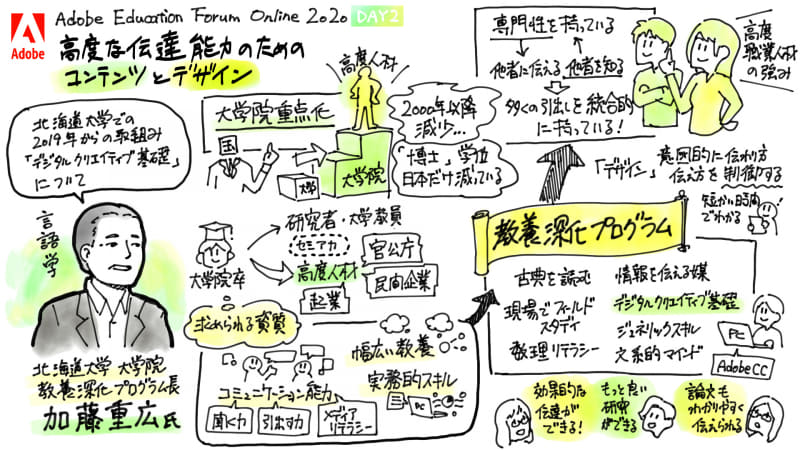 Adobe
Adobe Education Forum Online 2020 DAY2
高度な伝達能力のための
コンテンツとデザイン
北海道大学での
2019年からの取組み
「デジタルクリエイティブ基礎」
について
言語学
北海道大学 大学院
教養深化プログラム長
加藤重広氏
大学院重点化
高度人材
国
大学
大学院
2000年以降
減少…
「博士」学位
日本だけ減っている
大学院卒
研究者・大学教員
セミアカ
高度人材
起業
官公庁
民間企業
求められる資質
コミュニケーション能力
聞く力
引出す力
メディア
リテラシー
幅広い教養
実務的スキル
PC
専門性を持っている
他者に伝える
他者を知る
多くの引出しを統合的
に持っている!
高度
職業人材
の強み
「デザイン」
意図的に伝わり方
伝え方を制御する
短かい時間
でわかる
教養深化プログラム
古典を読む
現場でフィールド
スタディ
数理リテラシー
情報を伝える媒
デジタルクリエイティブ基礎
ジェネリックスキル
文系的マインド
PC
Adobe CC
効果的な
伝達が
できる!
もっと良い
研究
ができる
論文も
わかりやすく
伝えられる